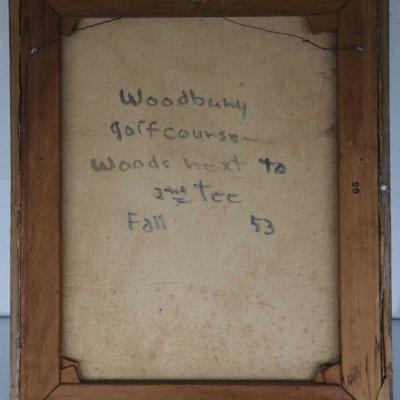 Woodbury
golf course
Woods next to
2nd tee
Fall 53
20